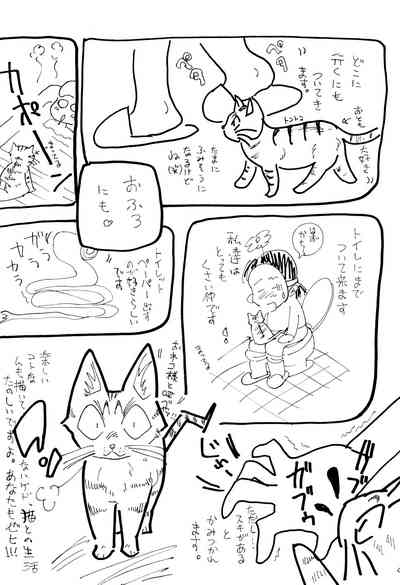 どこに
行くにも
ついてき
ます。
おとも
大好き
トコトコ
ペタ
ペタ
たまに
ふみそうに
なるけど
ね(笑)
カポーン
おふろ
にも。
トイレにまで
ついて来ます
私達は
とっても
くさい仲です
。
トイレット
ペーパー出す
のが好きらしい
です
ガラ
ガラ
カラ
おネコ様と呼べ!!
ただし
スキがある
と
かみつかれ
ます。
ガブ
ガブ
楽しい
コトな
んも描いて
ないケド
猫との生活
たのしいですよ。あなたもぜひ!!!